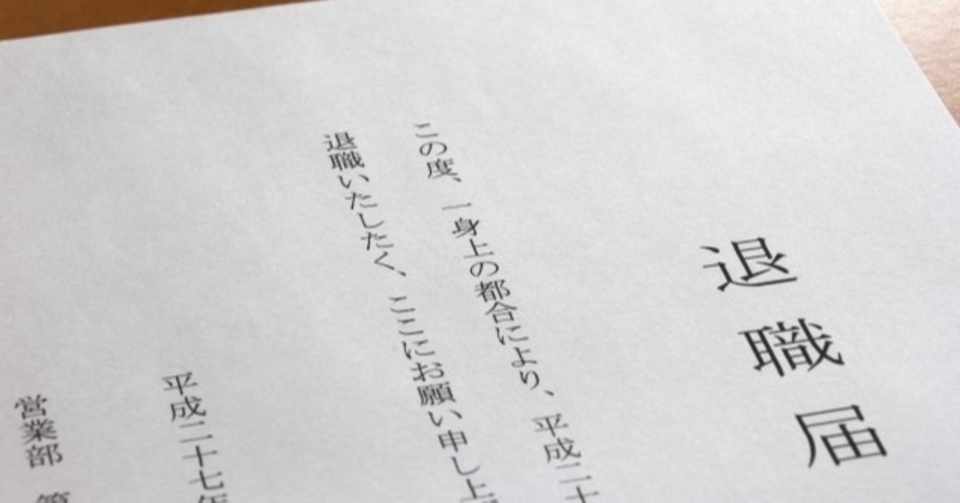 退職届
この度、一身上の都合により、平成二十
退職いたしたく、ここにお願い申し上
平成二十七年
営業部 第